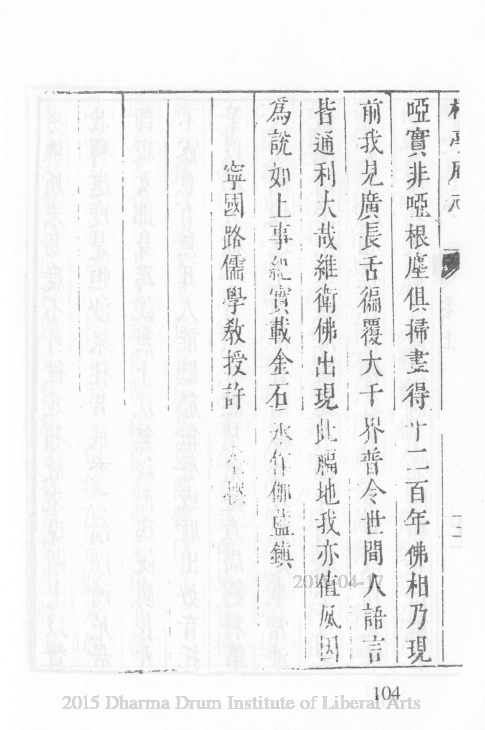 啞實非啞根塵俱掃盡得十二百年佛相乃現
前我見廣長舌徧覆大千界普令世間人語言
皆通利大哉維衛佛出現此福地我亦值風因
為說如上事紀實載金石永作伽藍鎮
寧國路儒學教授許
104
2015-04-17
2015 Dharma Drum Institute of Liberal Arts